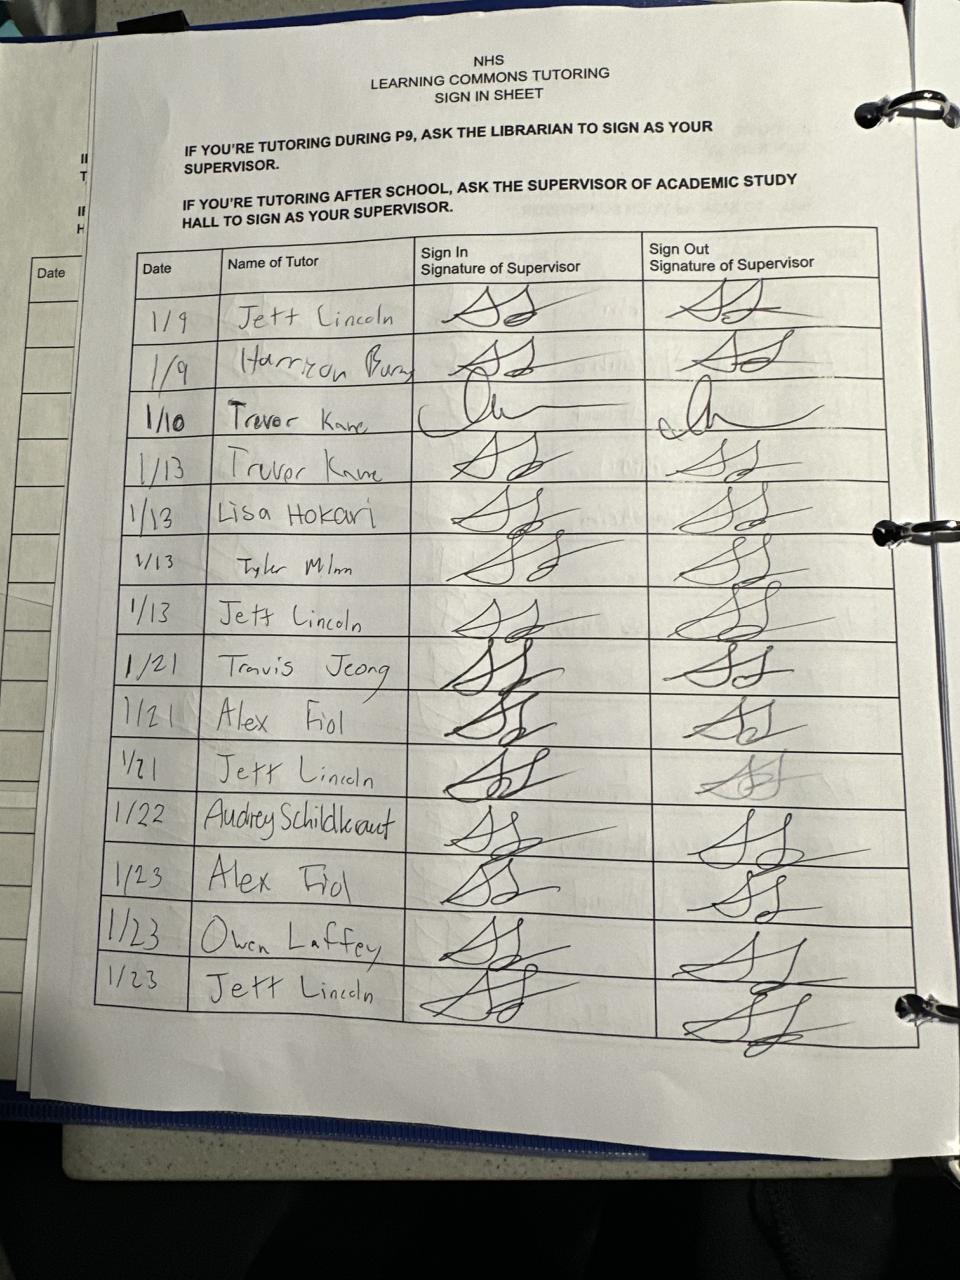 NHS
LEARNING COMMONS TUTORING
SIGN IN SHEET
IF YOU'RE TUTORING DURING P9, ASK THE LIBRARIAN TO SIGN AS YOUR
SUPERVISOR.
IF YOU'RE TUTORING AFTER SCHOOL, ASK THE SUPERVISOR OF ACADEMIC STUDY
HALL TO SIGN AS YOUR SUPERVISOR.
Date
Date Name of Tutor Sign In Signature of Supervisor Sign Out Signature of Supervisor
1/9 Jett Lincoln
1/9 Harrison
1/10 Trevor Kane
1/13 Trevor Kane
1/13 Lisa Hokari
1/13 Tyler
1/13 Jett Lincoln
1/21 Travis Jeong
1/21 Alex Fiol
1/21 Jett Lincoln
1/22 Audrey Schildkraut
1/23 Alex Fiol
1/23 Owen Laffey
1/23 Jett Lincoln